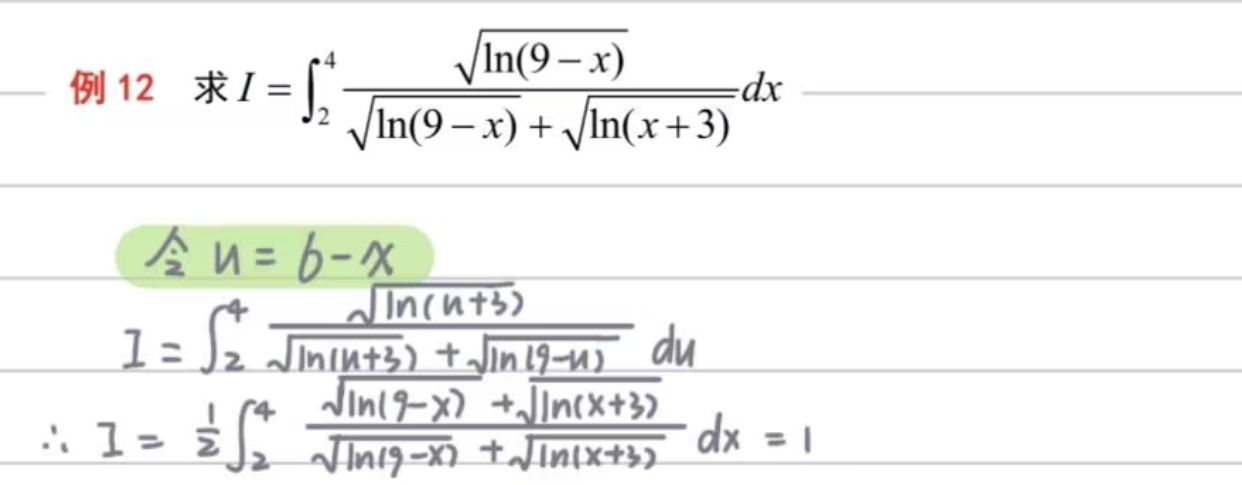 例 12 求 I = ∫₂⁴ √ln(9 − x) / (√ln(9 − x) + √ln(x + 3)) dx
令 u = 6 − x
I = ∫₂⁴ √ln(u+3) / (√ln(u+3) + √ln(9−u)) du
∴ I = ½ ∫₂⁴ (√ln(9−x) + √ln(x+3)) / (√ln(9−x) + √ln(x+3)) dx = 1